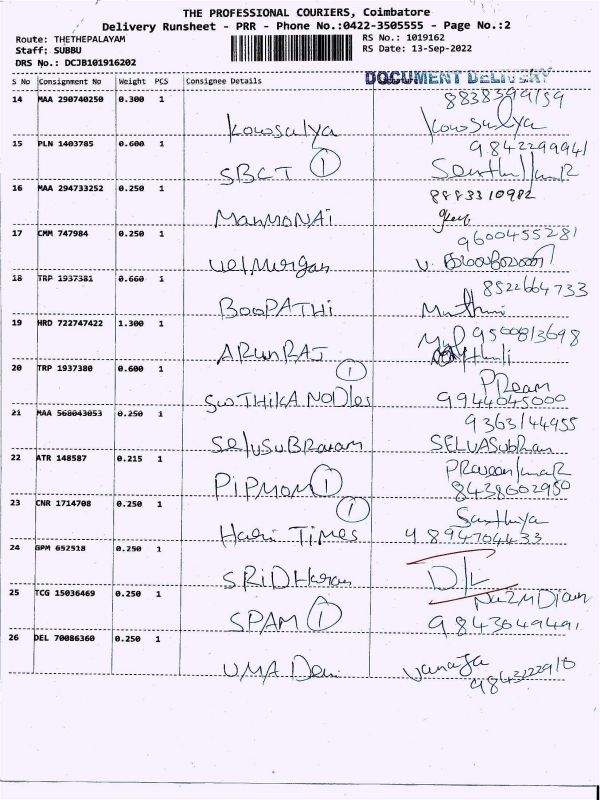 THE PROFESSIONAL COURIERS, Coimbatore
Delivery Runsheet - PRR - Phone No.:0422-3505555 - Page No.:2
Route: THETHEPALAYAM RS No.: 1019162
Staff: SUBBU RS Date: 13-Sep-2022
DRS No.: DCJB101916202
S No Consignment No Weight PCS Consignee Details DOCUMENT DELIVERY
14 MAA 290740250 0.300 1
Kowsalya Kowsalya
15 PLN 1403785 0.600 1 9842299941
SBCT 1 Senthilkumar
16 MAA 294733252 0.250 1 8883310982
MANMONAI
17 CMM 747984 0.250 1 9600455281
velmurgan
18 TRP 1937381 0.660 1 8522664733
BOOPATHI
19 HRD 722747422 1.300 1 9500813698
ARUNRAJ
20 TRP 1937380 0.600 1 1 PReam
SWATHIKA NODLES 9944045000
21 MAA 568043053 0.250 1 9363144955
SelvSUBRaram SELVASubhan
22 ATR 148587 0.215 1 PRaveenkumaR
PIPMOM 1 8438602950
23 CNR 1714708 0.250 1 1 Santhiya
Hari Times 894704433
24 GPM 652518 0.250 1
SRIDHaran D/L
25 TCG 15036469 0.250 1
SPAM 1 9843649491
26 DEL 70086360 0.250 1
UMA Devi Vanaja